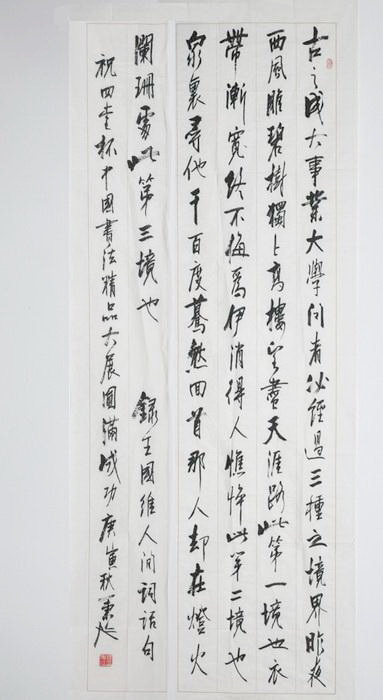 古之成大事業大學問者必經過三種之境界昨夜
西風雕碧樹獨上高樓望盡天涯路此第一境也衣
帶漸寬終不悔爲伊消得人憔悴此第二境也
衆裏尋他千百度驀然回首那人却在燈火
闌珊處此第三境也 錄王國維人間詞話句
祝四堂杯中國書法精品大展圓滿成功庚寅秋